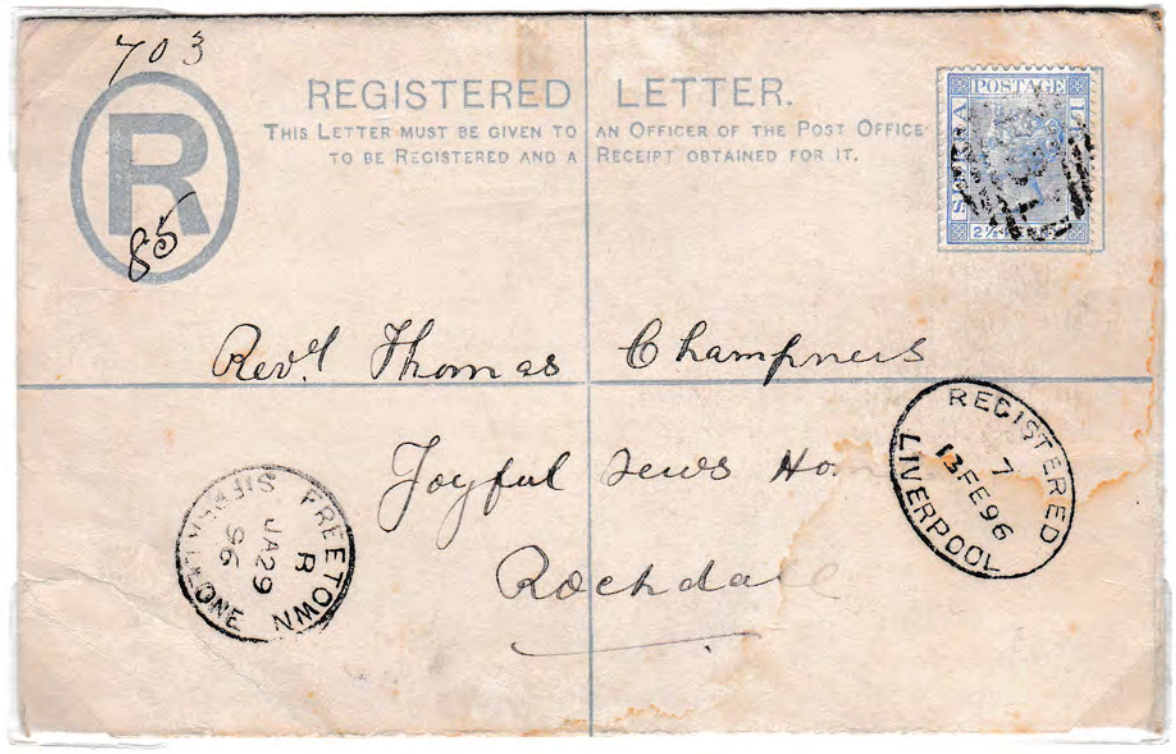 703
REGISTERED LETTER.
THIS LETTER MUST BE GIVEN TO AN OFFICER OF THE POST OFFICE
TO BE REGISTERED AND A RECEIPT OBTAINED FOR IT.
R
85
POSTAGE
2½
Revd Thomas Champness
Joyful News Ho
Rochdale
FREETOWN
SIERRA LEONE
R
JA 29
96
REGISTERED
7
13 FE 96
LIVERPOOL